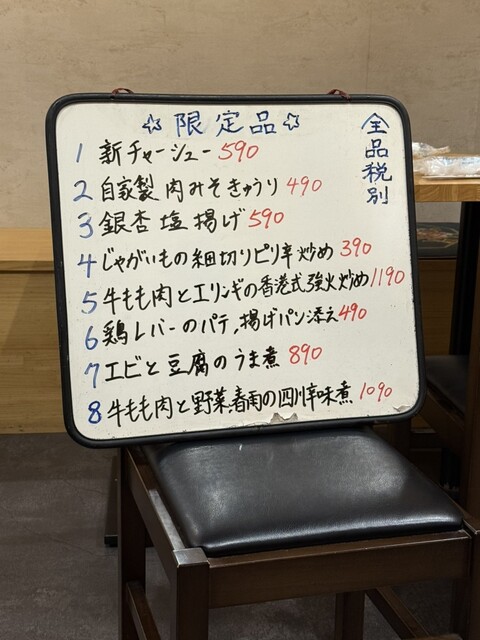 ☆限定品☆
全品税別
1 新チャーシュー 590
2 自家製 肉みそきゅうり 490
3 銀杏塩揚げ 590
4 じゃがいもの細切りピリ辛炒め 390
5 牛もも肉とエリンギの香港式強火炒め 1190
6 鶏レバーのパテ、揚げパン添え 490
7 エビと豆腐のうま煮 890
8 牛もも肉と野菜、春雨の四川辛味煮 1090